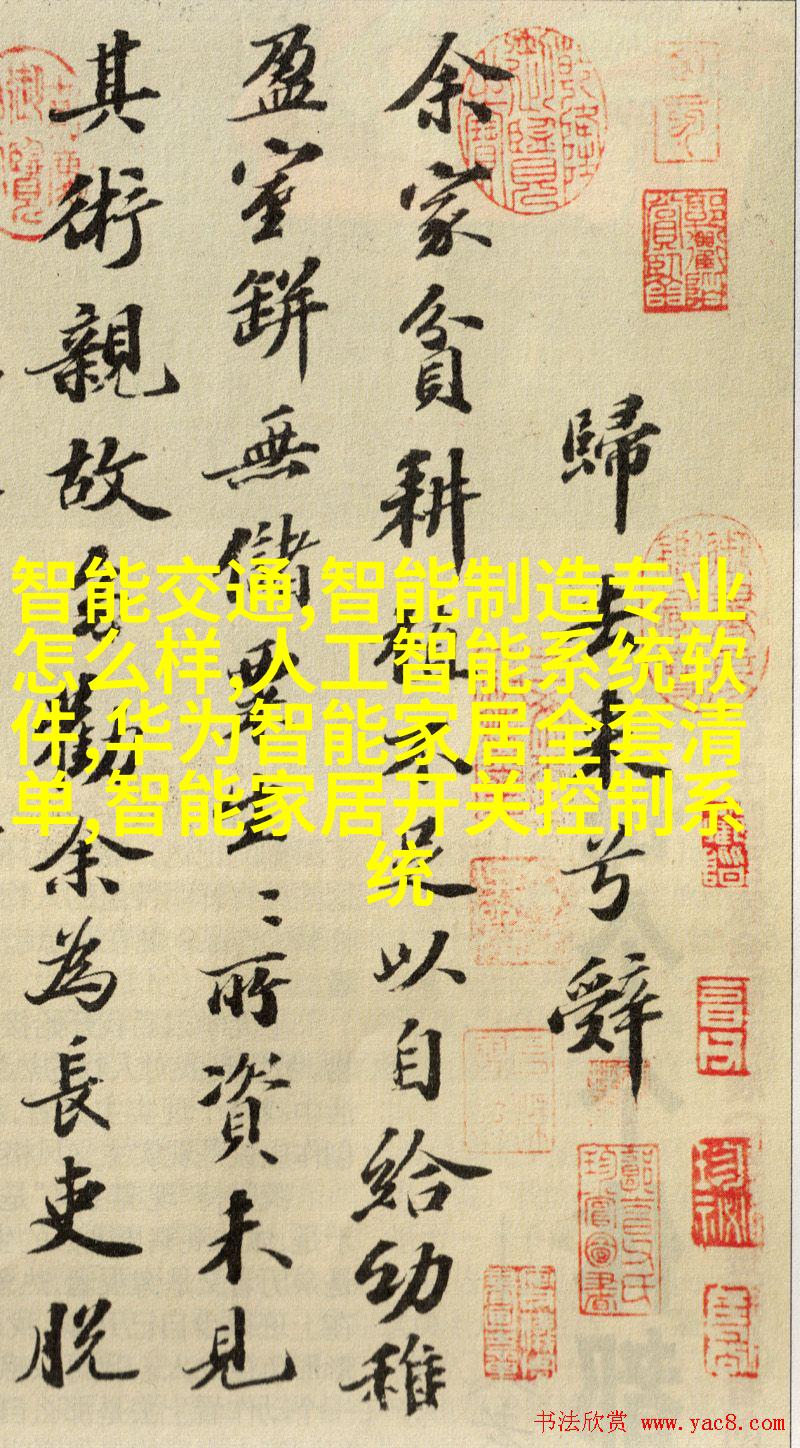 歸去来兮辤
余家貧耕植不足以自給幼稚
盈室缾無儲粟生〻所資未見
其術親故多勸余為長吏脱
智能交通,智能制造专业
怎么样,人工智能系统软
件,华为智能家居全套清
单,智能家居开关控制系
统
书法欣赏 www.yac8.com